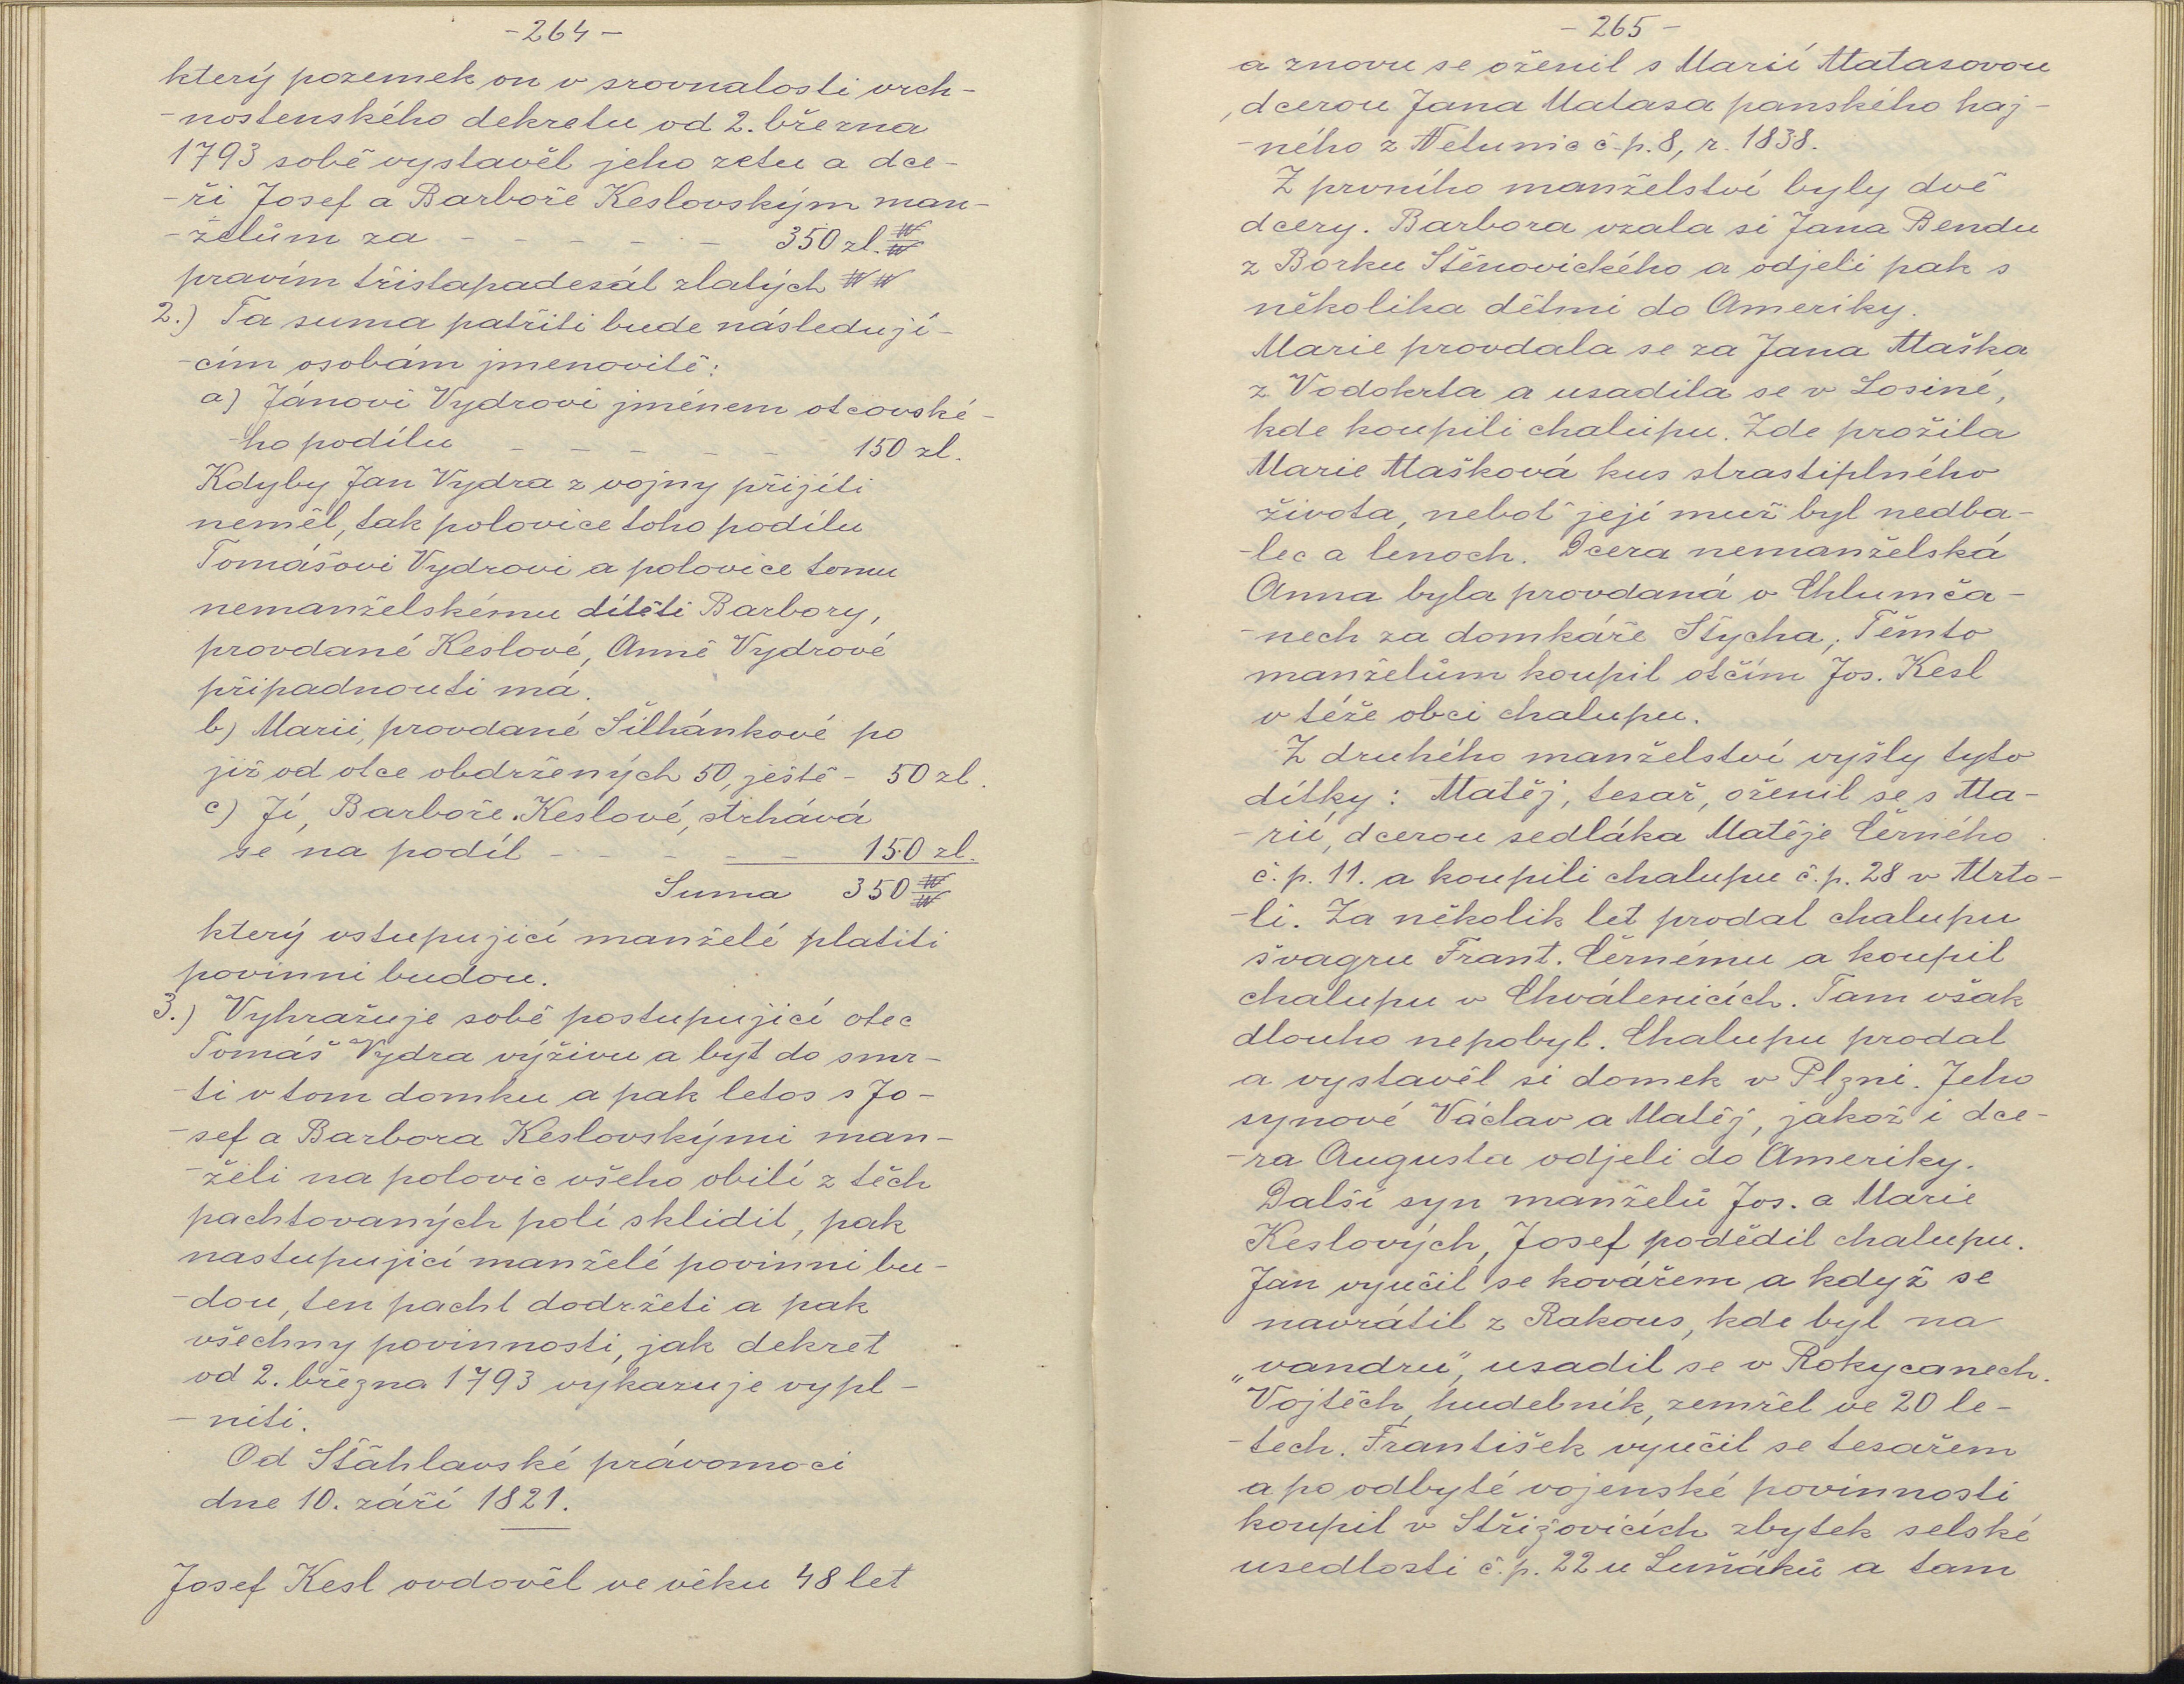 -264-
který pozemek on v srovnalosti vrch-
-nostenského dekretu od 2. března
1793 sobě vystavěl jeho zetu a dce-
-ři Josef a Barboře Keslovským man-
-želům za - - - - - - 350 zl. W W
pravím třistapadesát zlatých W W
2.) Ta suma patřiti bude následují-
-cím osobám jmenovitě:
a) Jánovi Vydrovi jménem otcovské-
-ho podílu - - - - - - 150 zl.
Kdyby Jan Vydra z vojny přijíti
neměl, tak polovice toho podílu
Tomášovi Vydrovi a polovice tomu
nemanželskému dítěti Barbory,
provdané Keslové, Anně Vydrové
připadnouti má.
b) Marii, provdané Šilhánkové po
již od otce obdržených 50, ještě - 50 zl.
c) Jí, Barboře Keslové, strhává
se na podíl - - - - - 150 zl.
Suma 350 W W
který vstupující manželé platiti
povinni budou.
3.) Vyhražuje sobě postupující otec
Tomáš Vydra výživu a byt do smr-
-ti v tom domku a pak letos s Jo-
-sef a Barbora Keslovskými man-
-želi na polovic všeho obilí z těch
pachtovaných polí sklidit, pak
nastupující manželé povinni bu-
-dou, ten pacht dodržeti a pak
všechny povinnosti, jak dekret
od 2. března 1793 vykazuje vypl-
-niti.
Od Šťáhlavské právomoci
dne 10. září 1821.
Josef Kesl ovdověl ve věku 48 let
-265-
a znovu se oženil s Marií Matasovou
, dcerou Jana Matasa panského haj-
-ného z Netunic č.p. 8, r. 1838.
Z prvního manželství byly dvě
dcery. Barbora vzala si Jana Bendu
z Borku Štěnovického a odjeli pak s
několika dětmi do Ameriky.
Marie provdala se za Jana Maška
z Vodokrta a usadila se v Losiné,
kde koupili chalupu. Zde prožila
Marie Mašková kus strastiplného
života, neboť její muž byl nedba-
-lec a lenoch. Dcera nemanželská
Anna byla provdaná v Chlumča-
-nech za domkáře Stýcha. Těmto
manželům koupil otčím Jos. Kesl
v téže obci chalupu.
Z druhého manželství vyšly tyto
dítky: Matěj, tesař, oženil se s Ma-
-rií, dcerou sedláka Matěje Černého
č.p. 11. a koupili chalupu č.p. 28 v Mrto-
-li. Za několik let prodal chalupu
švagru Frant. Černému a koupil
chalupu v Chválenicích. Tam však
dlouho nepobyl. Chalupu prodal
a vystavěl si domek v Plzni. Jeho
synové Václav a Matěj, jakož i dce-
-ra Augusta odjeli do Ameriky.
Další syn manželů Jos. a Marie
Keslových, Josef podědil chalupu.
Jan vyučil se kovářem a když se
navrátil z Rakous, kde byl na
„vandru", usadil se v Rokycanech.
Vojtěch, hudebník, zemřel ve 20 le-
-tech. František vyučil se tesařem
a po odbyté vojenské povinnosti
koupil v Střížovicích zbytek selské
usedlosti č.p. 22 u Luňáků a tam